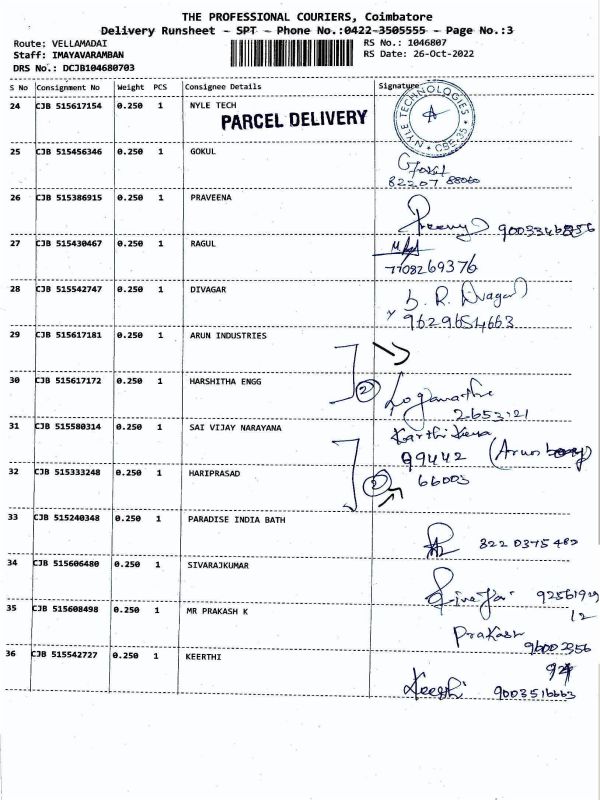 THE PROFESSIONAL COURIERS, Coimbatore
Delivery Runsheet - SPT - Phone No.:0422-3505555 - Page No.:3
Route: VELLAMADAI RS No.: 1046807
Staff: IMAYAVARAMBAN RS Date: 26-Oct-2022
DRS No.: DCJB104680703
S No Consignment No Weight PCS Consignee Details Signature
24 CJB 515617154 0.250 1 NYLE TECH
PARCEL DELIVERY
NYLE TECHNOLOGIES * CBE-35 *
25 CJB 515456346 0.250 1 GOKUL
82207 88060
26 CJB 515386915 0.250 1 PRAVEENA
27 CJB 515430467 0.250 1 RAGUL
7708269376
28 CJB 515542747 0.250 1 DIVAGAR
9629654663
29 CJB 515617181 0.250 1 ARUN INDUSTRIES
30 CJB 515617172 0.250 1 HARSHITHA ENGG
2
2653121
31 CJB 515580314 0.250 1 SAI VIJAY NARAYANA
99442
32 CJB 515333248 0.250 1 HARIPRASAD
2
66003
33 CJB 515240348 0.250 1 PARADISE INDIA BATH
34 CJB 515606480 0.250 1 SIVARAJKUMAR
92561929
12
35 CJB 515608498 0.250 1 MR PRAKASH K
Prakash
36 CJB 515542727 0.250 1 KEERTHI
9003516663